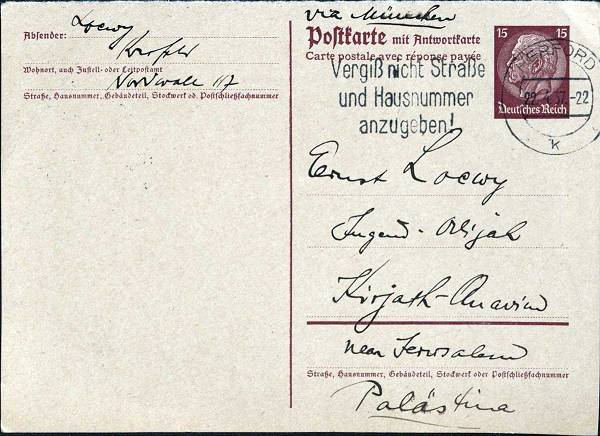 Absender:
Loewy
Herford
Wohnort, auch Zustell- oder Leitpostamt
Nordwall 17
Straße, Hausnummer, Gebäudeteil, Stockwerk od. Postschließfachnummer
via München
Postkarte mit Antwortkarte
Carte postale avec réponse payée
15 15
Deutsches Reich
HERFORD
37-22
k
Vergiß nicht Straße
und Hausnummer
anzugeben!
Ernst Loewy
Jugend-Alijah
Kirjath-Anavim
near Jerusalem
Straße, Hausnummer, Gebäudeteil, Stockwerk oder Postschließfachnummer
Palästina